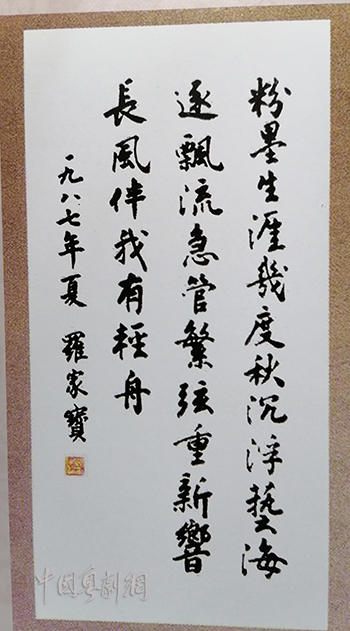 粉墨生涯幾度秋沉浮藝海
逐飄流急管繁弦重新響
長風伴我有輕舟
一九八七年夏 羅家寶
中国粤剧網